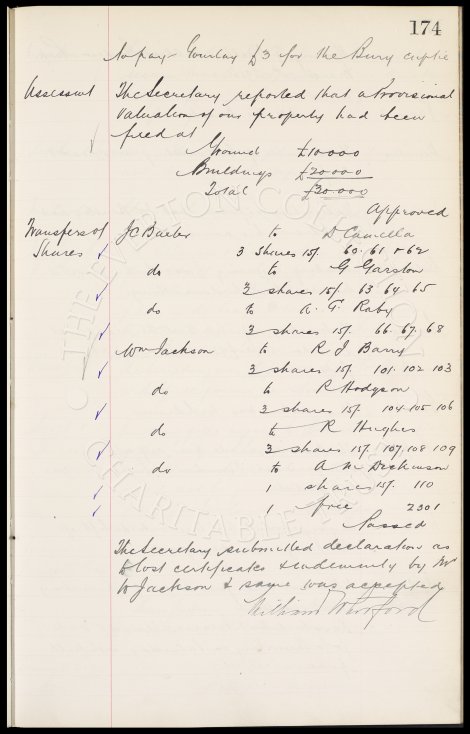 174
to pay Gourlay £3 for the Bury cuptie
Assessmt The Secretary reported that a Provisional
valuation of our property had been
fixed at
Ground £10000
Buildings £20000
Total £30000
Approved
Transfers of Shares JC Baxter to D Camella
3 shares 15/. 60. 61 & 62
do to G Garston
3 shares 15/. 63 64 65
do to A. G. Raby
3 shares 15/. 66. 67. 68
Wm Jackson to R J Barry
3 shares 15/. 101. 102 103
do to R Hodgson
3 shares 15/. 104. 105 106
do to R Hughes
3 shares 15/. 107. 108 109
do to A M Dickinson
1 shares 15/. 110
1 free 2301
Passed
The Secretary submitted declaration as
to lost certificates & indemnity by Mr
Jackson & same was accepted
William Whitford
THE EVERTON COLLECTION
CHARITABLE